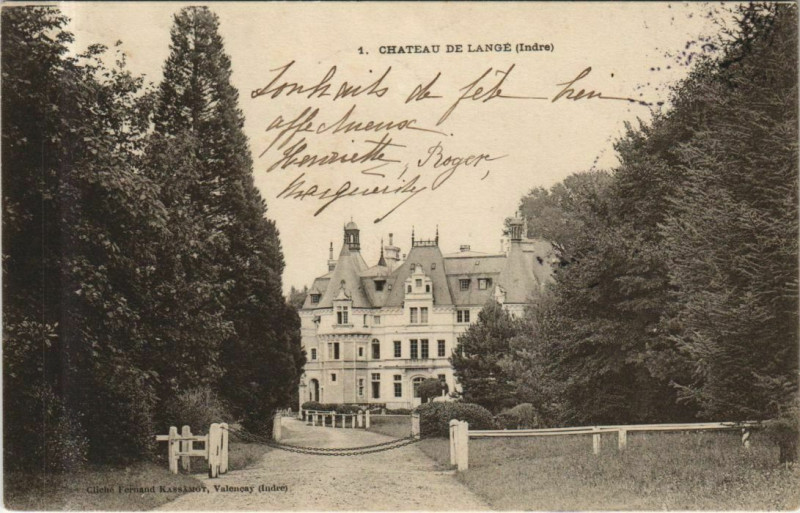 1. CHATEAU DE LANGÉ (Indre)
Souhaits de fête bien
affectueux
Henriette, Roger,
Marguerite
Cliché Fernand KASSAMOT, Valençay (Indre)